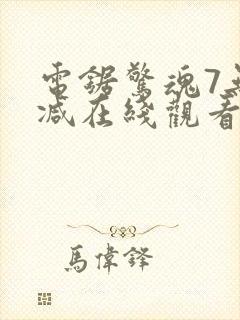 電鋸驚魂7無
減在綫觀看
馬偉鋒